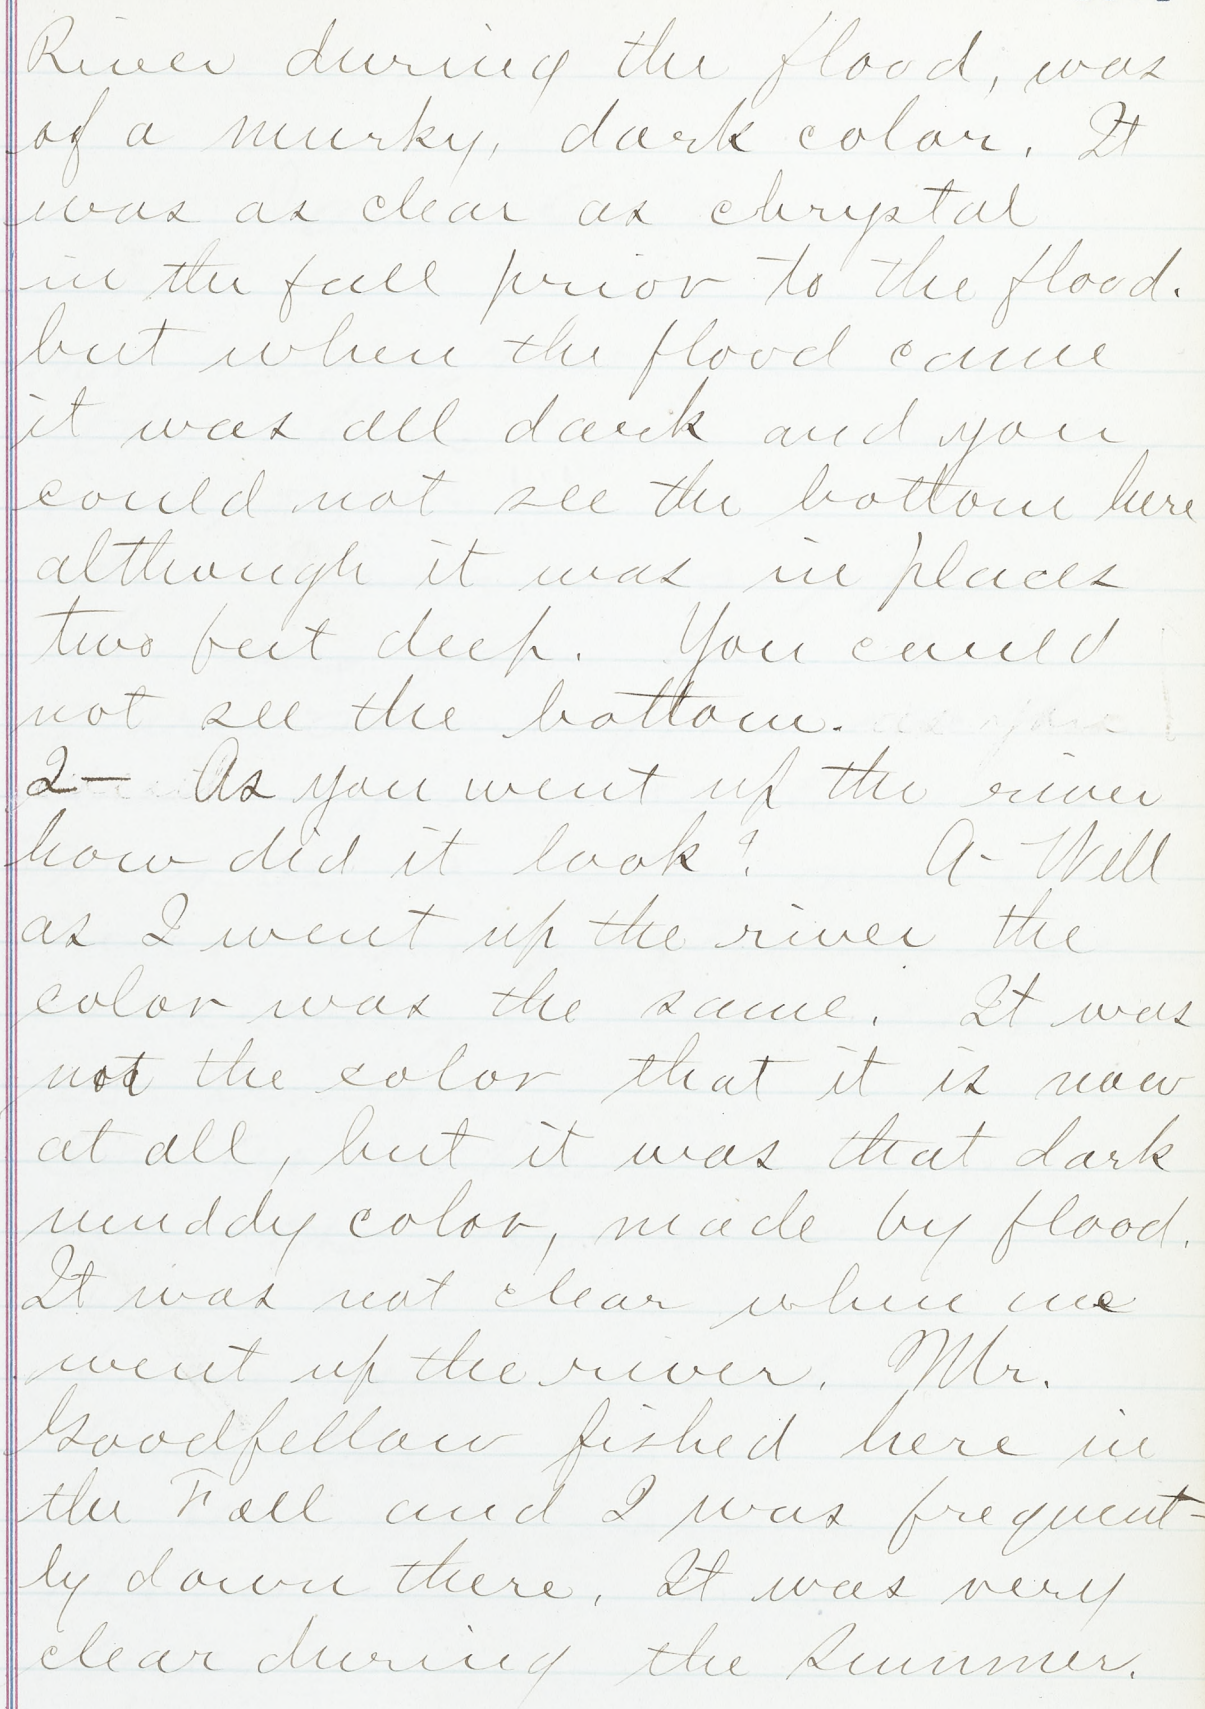 River during the flood, was
of a murky, dark color. It
was as clear as chrystal
in the fall prior to the flood.
but when the flood came
it was all dark and you
could not see the bottom here
although it was in places
two feet deep. You could
not see the bottom.
Q— As you went up the river
how did it look? A- Well
as I went up the river the
color was the same. It was
not the color that it is now
at all, but it was that dark
muddy color, made by flood.
It was not clear when we
went up the river. Mr.
Goodfellow fished here in
the Fall and I was frequent-
ly down there. It was very
clear during the Summer.